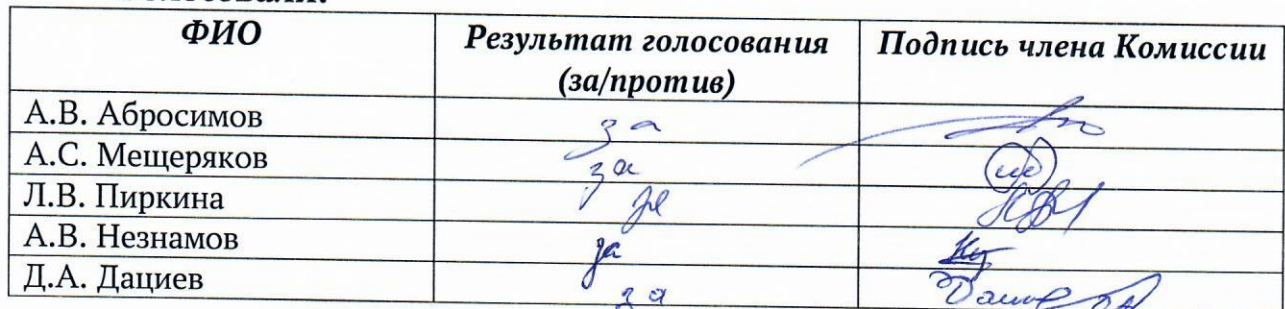 ФИО Результат голосования Подпись члена Комиссии
(за/против)
А.В. Абросимов за
А.С. Мещеряков за
Л.В. Пиркина за
А.В. Незнамов за
Д.А. Дациев за